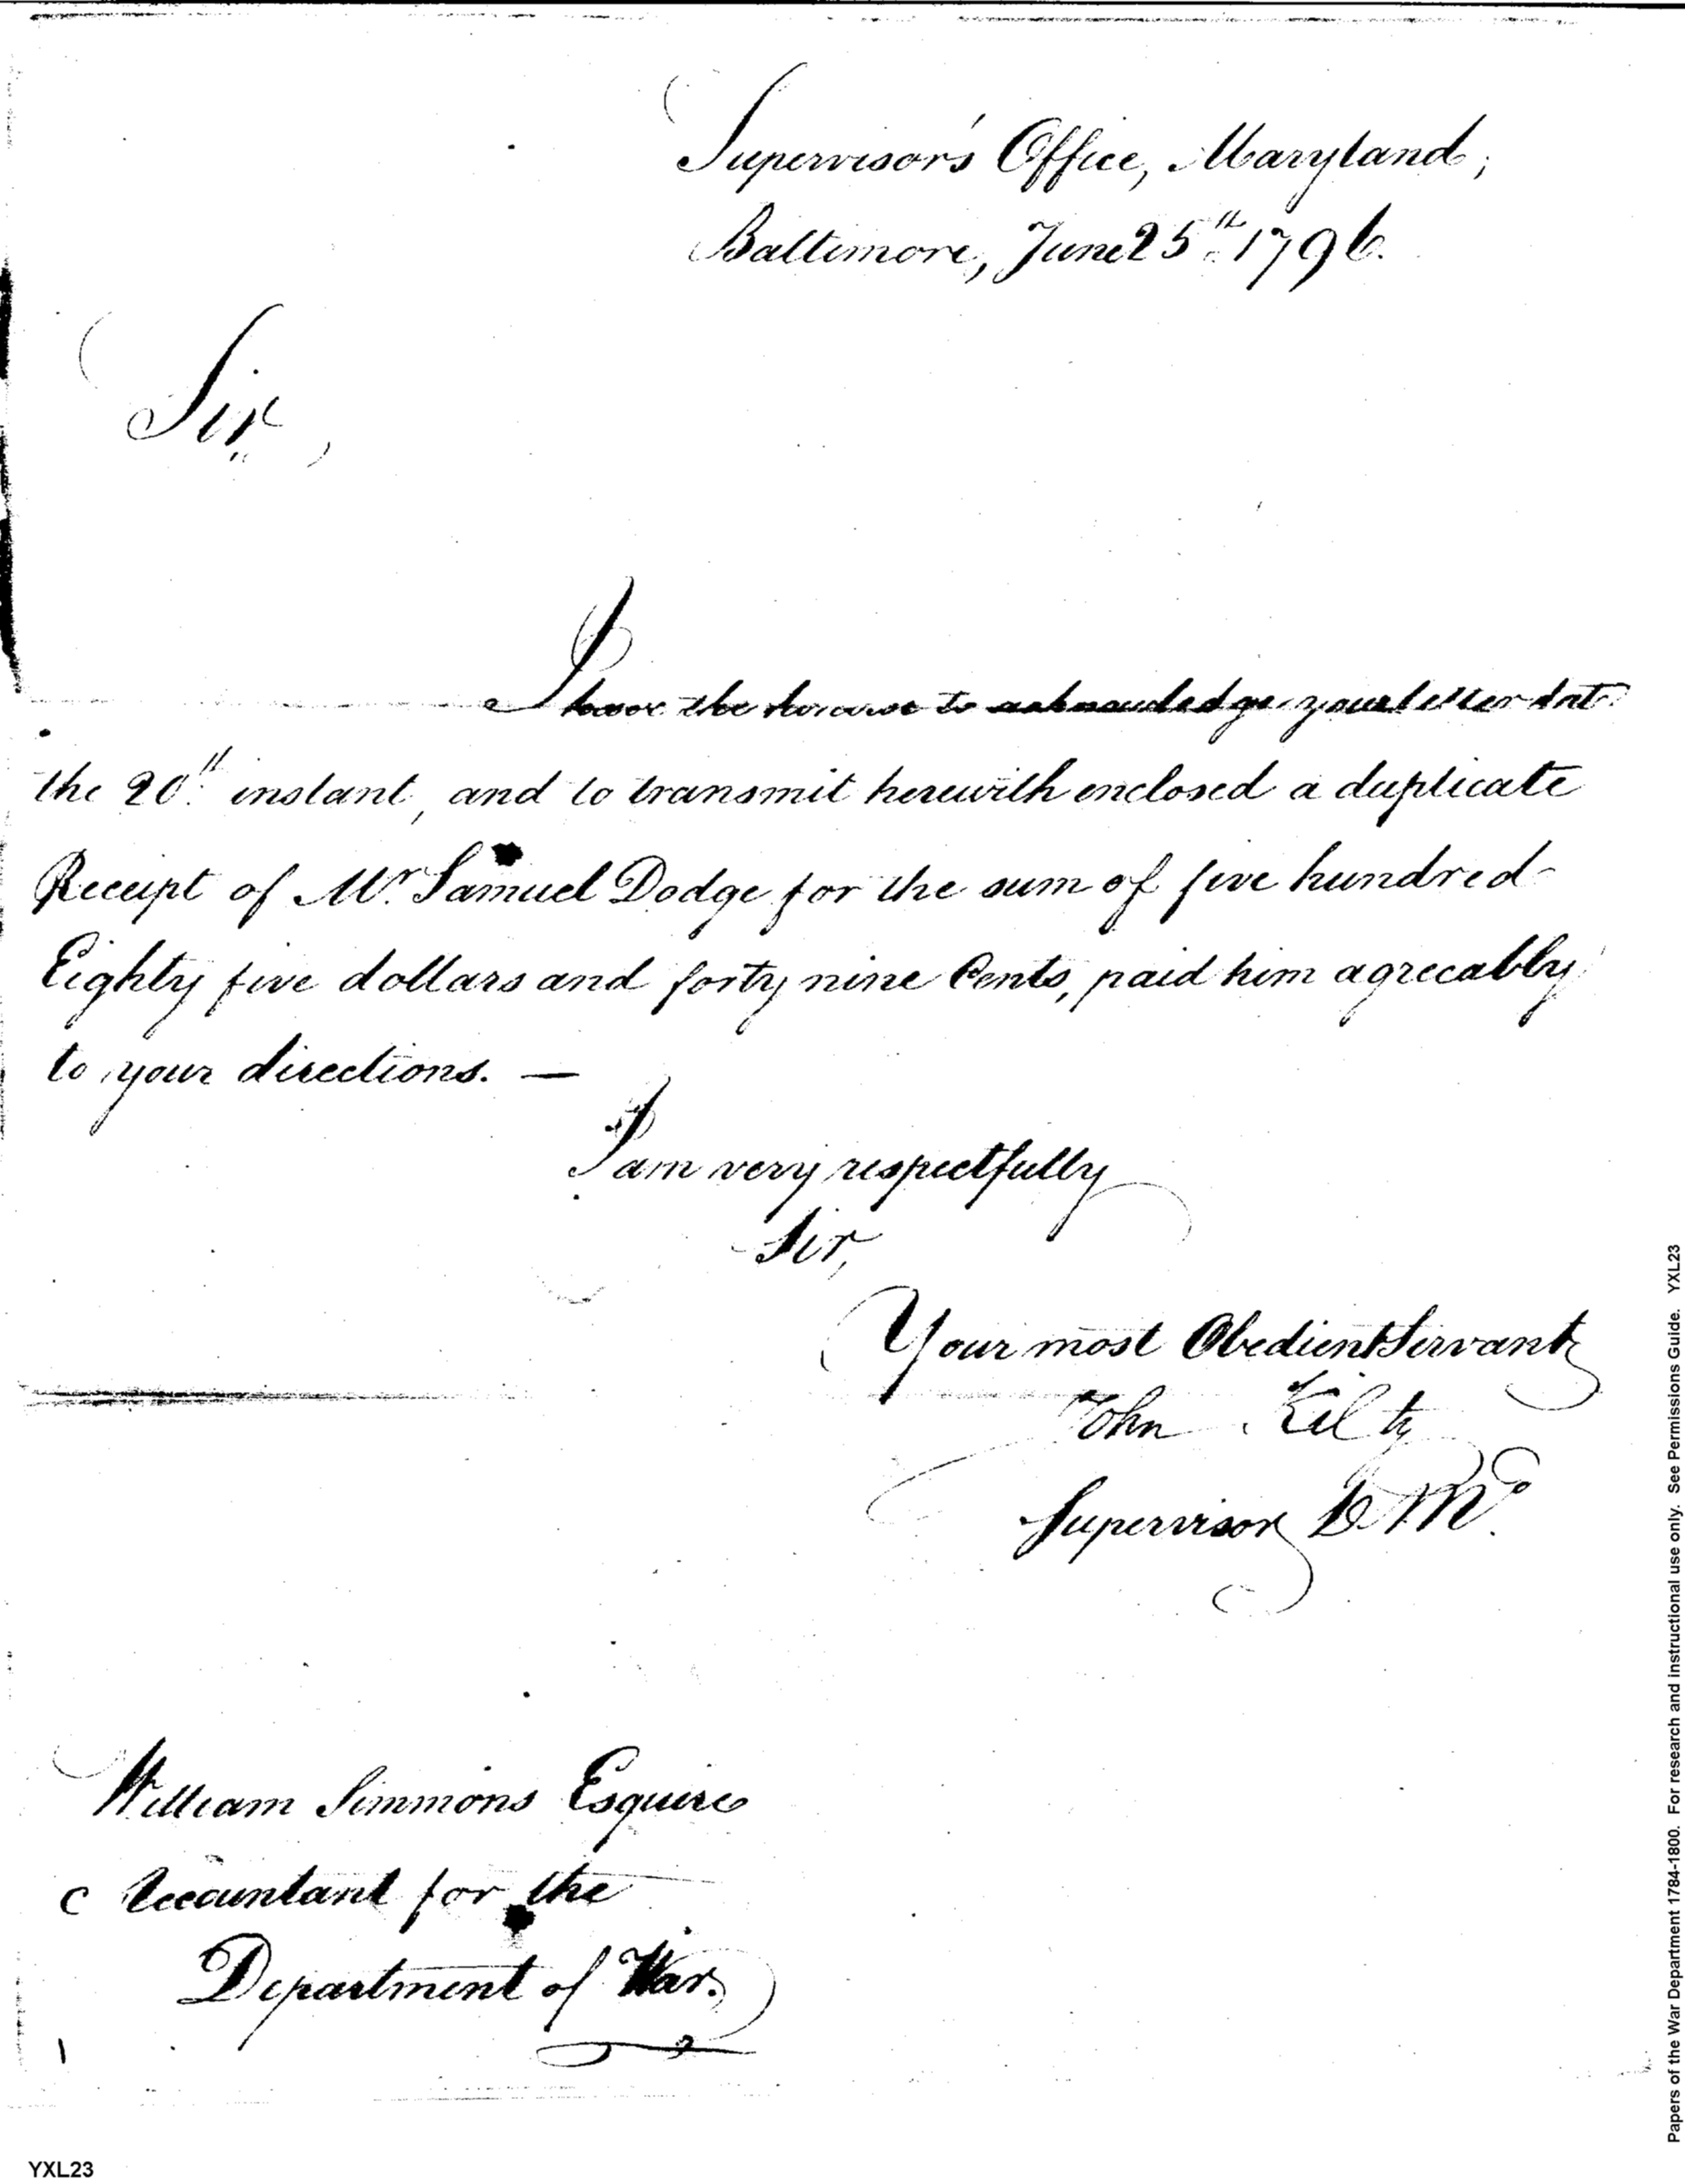 Supervisor's Office, Maryland;
Baltimore, June 25th 1796.
Sir,
I have the honour to acknowledge your letter dat
the 20th instant, and to transmit herewith enclosed a duplicate
Receipt of Mr. Samuel Dodge for the sum of five hundred
Eighty five dollars and forty nine Cents, paid him agreeably
to your directions. —
I am very respectfully
Sir,
Your most Obedient Servant
John Kilty
Supervisor
William Simmons Esquire
Accountant for the
Department of War.
YXL23
Papers of the War Department 1784-1800. For research and instructional use only. See Permissions Guide. YXL23